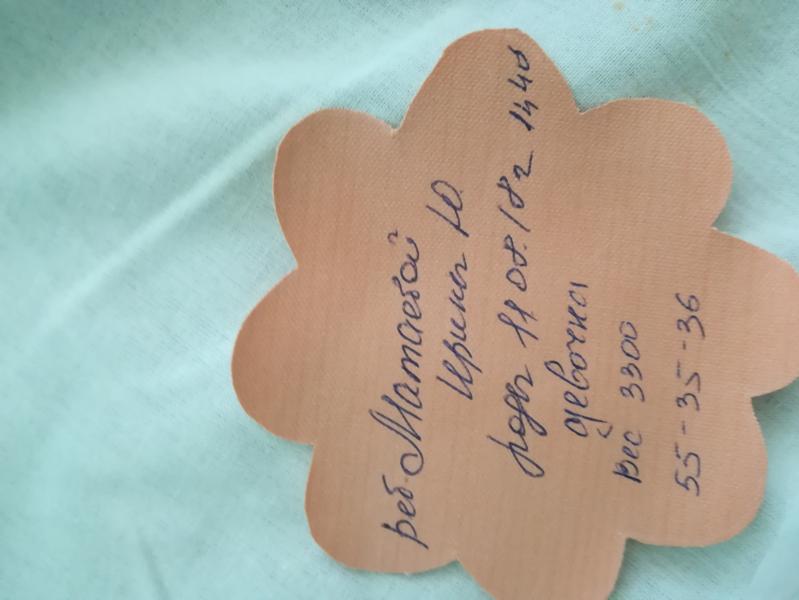 реб. Матаевой
Ирины Ю.
роды 11 08. 18г 14 40
девочка
вес 3300
55-35-36